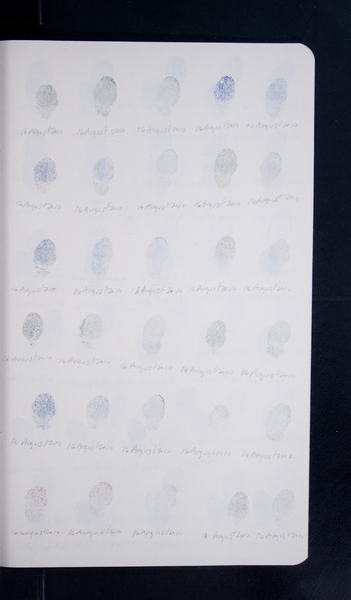 16 August 2012 16 August 2012 16 August 2012 16 August 2012 16 August 2012
16 August 2012 16 August 2012 16 August 2012 16 August 2012 16 August 2012
16 August 2012 16 August 2012 16 August 2012 16 August 2012 16 August 2012
16 August 2012 16 August 2012 16 August 2012 16 August 2012 16 August 2012
16 August 2012 16 August 2012 16 August 2012 16 August 2012 16 August 2012
16 August 2012 16 August 2012 16 August 2012 16 August 2012 16 August 2012